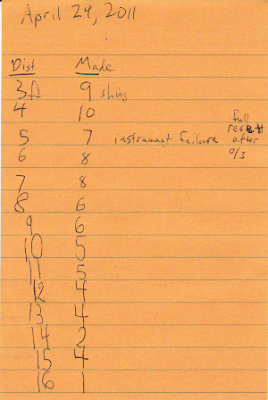 April 24, 2011
Dist Made
3 ft 9 shots
4 10
5 7 instrument failure full reset after 0/3
6 8
7 8
8 6
9 6
10 5
11 5
12 4
13 4
14 2
15 4
16 1